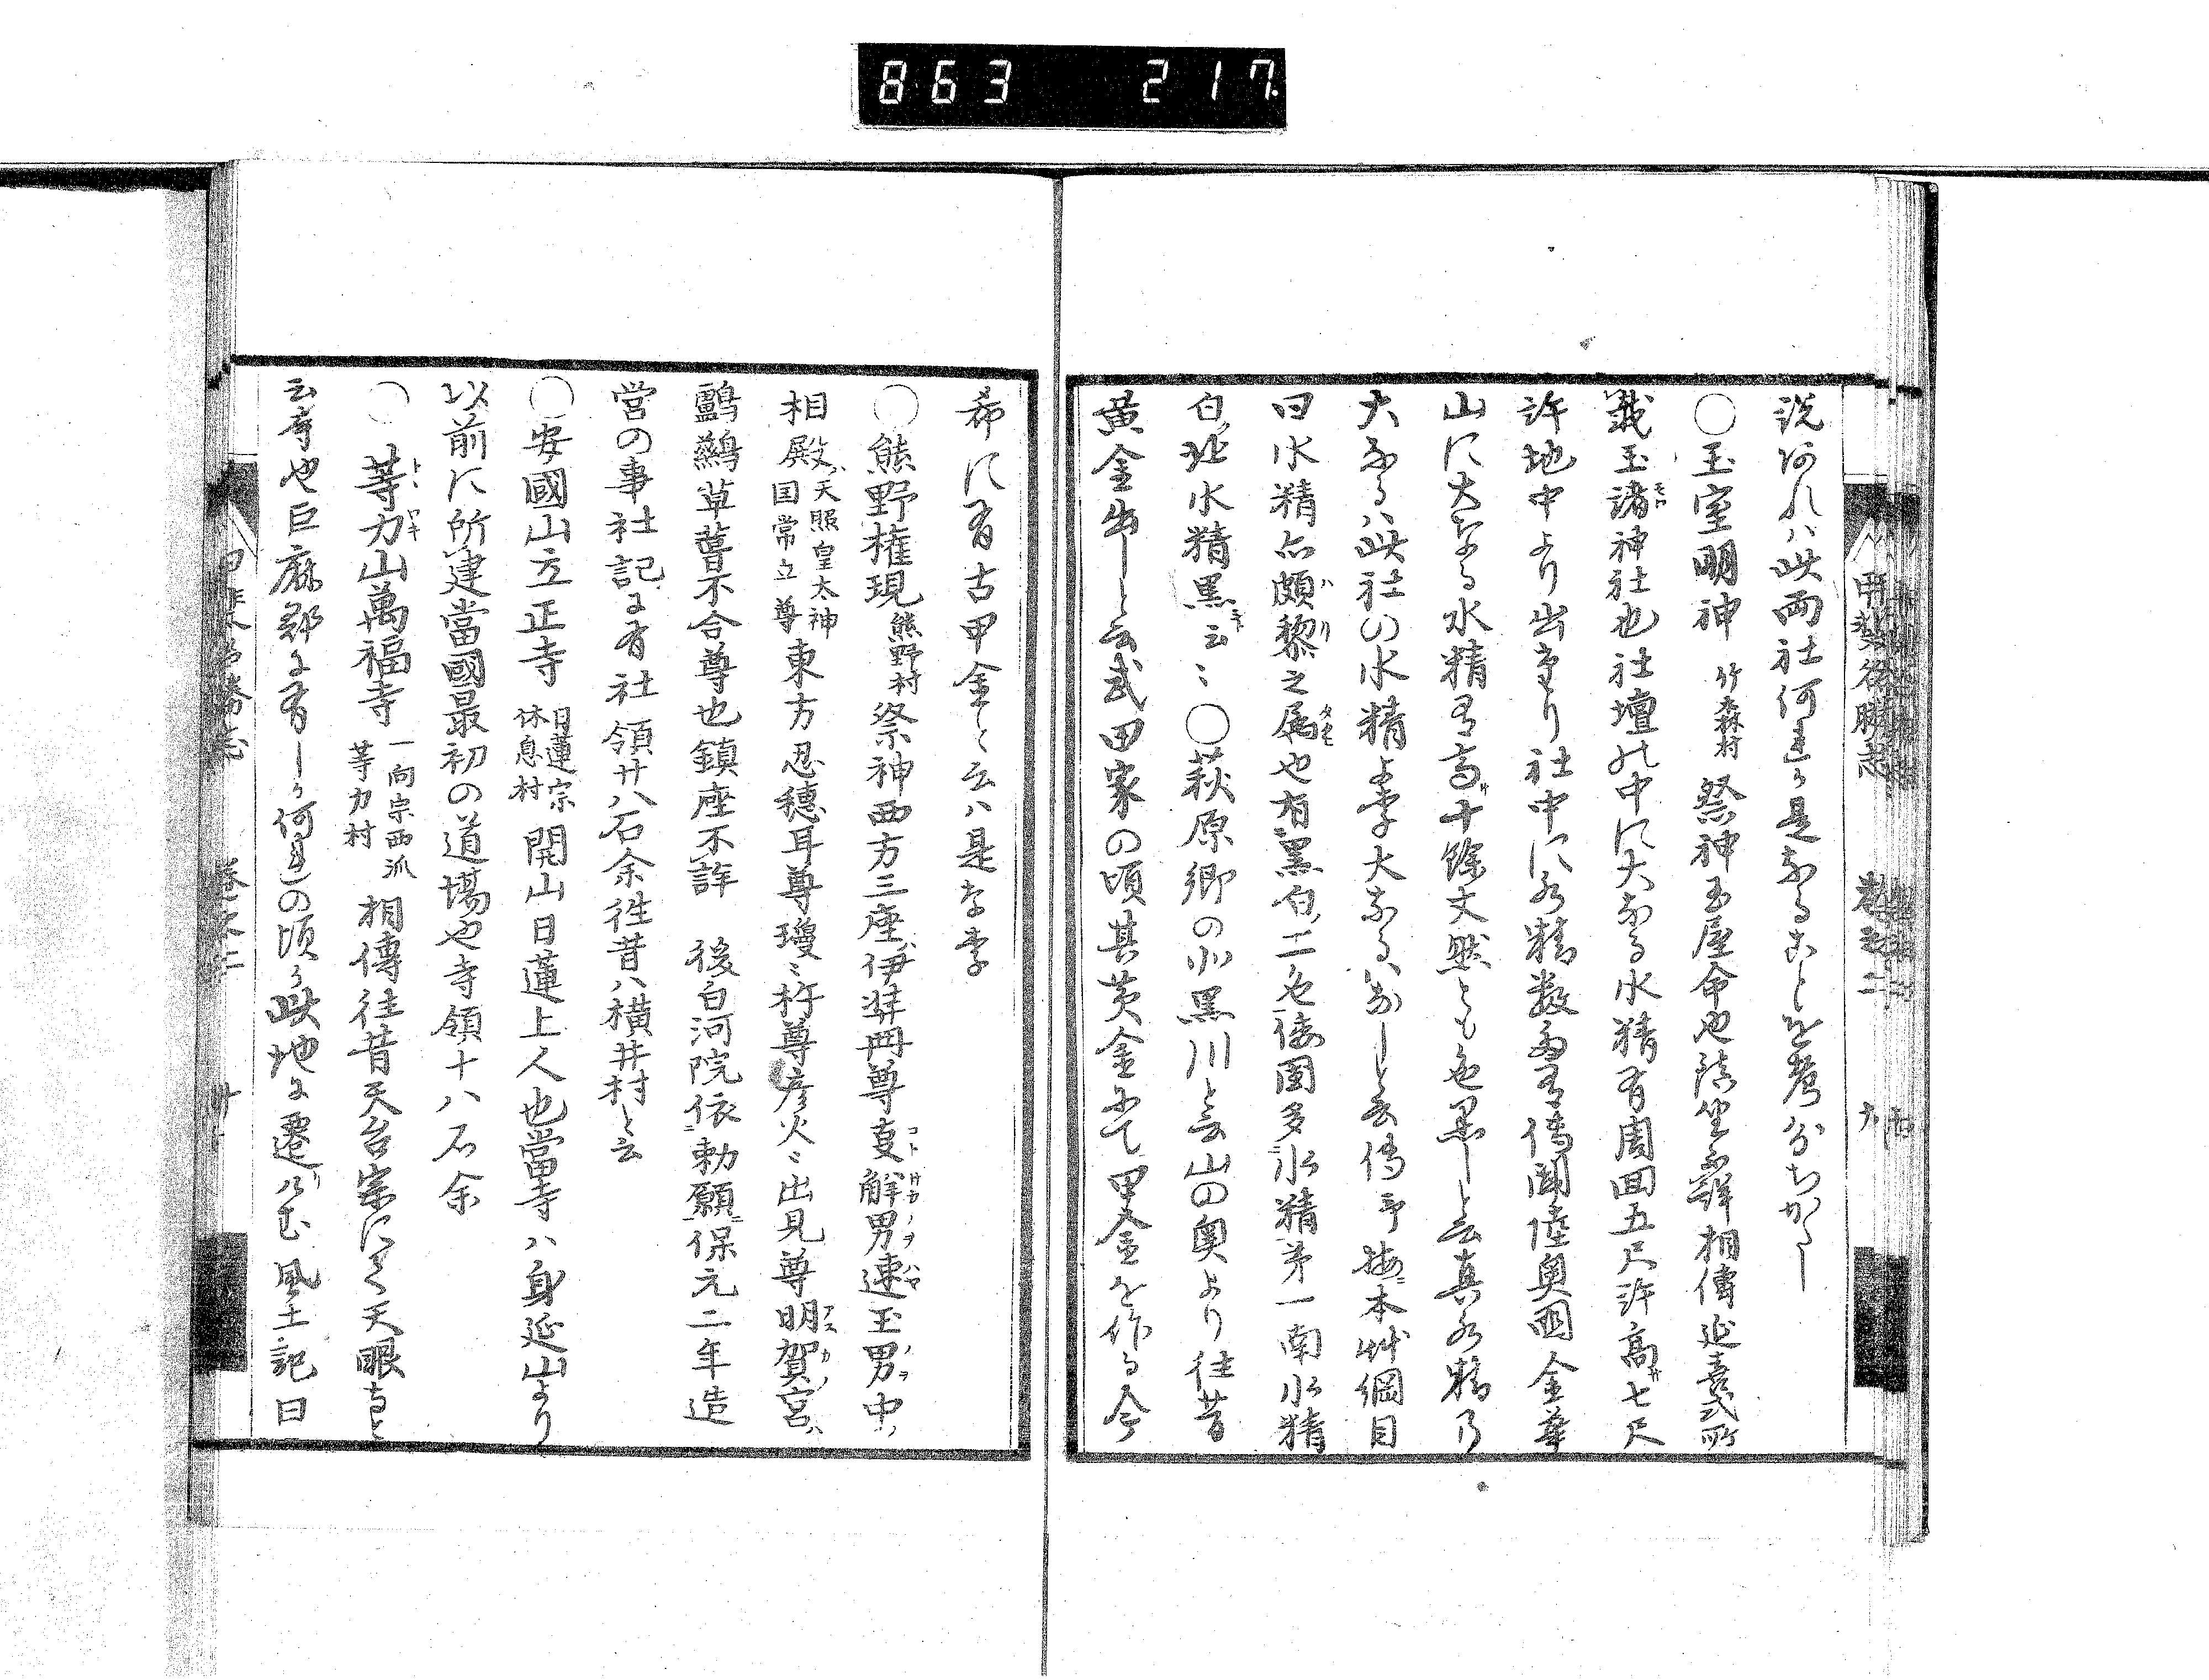 863 217
説何れハ此両社何れか是なることを考分ちかたし
〇玉室明神 竹森村 祭神玉屋命也鎮坐不詳相傳延喜式所
載玉諸神社也社壇の中に大なる水精有周囲五尺許高サ七尺
許地中より出たり社中に水精数多有傳聞陸奥國金華
山に大なる水精有高サ十餘丈然とも色黒しと云真水精乃
大なるハ此社の水精より大なるハなしと云傳ふ按ニ本艸綱目
曰水精亦頗黎之属也有黒白ノ二色倭國多水精第一南水精
白ク北水精黒シ云々 〇萩原郷の小黒川と云山の奥より往昔
黄金出しと云武田家の頃其黄金にて甲金を作る今
希に有古甲金と云ハ是なり
〇熊野権現 熊野村 祭神西方三座ハ伊弉冊尊事解男速玉男中ハ
相殿ハ天照皇太神国常立尊東方忍穂耳尊瓊々杵尊彦火々出見尊明賀宮ハ
鸕鷀草葺不合尊也鎮座不詳 後白河院依勅願保元二年造
営の事社記に有社領廿八石余徃昔ハ横井村と云
〇安國山立正寺 日蓮宗 休息村 開山日蓮上人也當寺ハ身延山より
以前に所建當國最初の道場也寺領十八石余
〇等力山萬福寺 一向宗西派 等力村 相傳往昔天台宗にて天眼寺と
云寺也巨麻郡に有しか何れの頃か此地に遷ハむ風土記曰